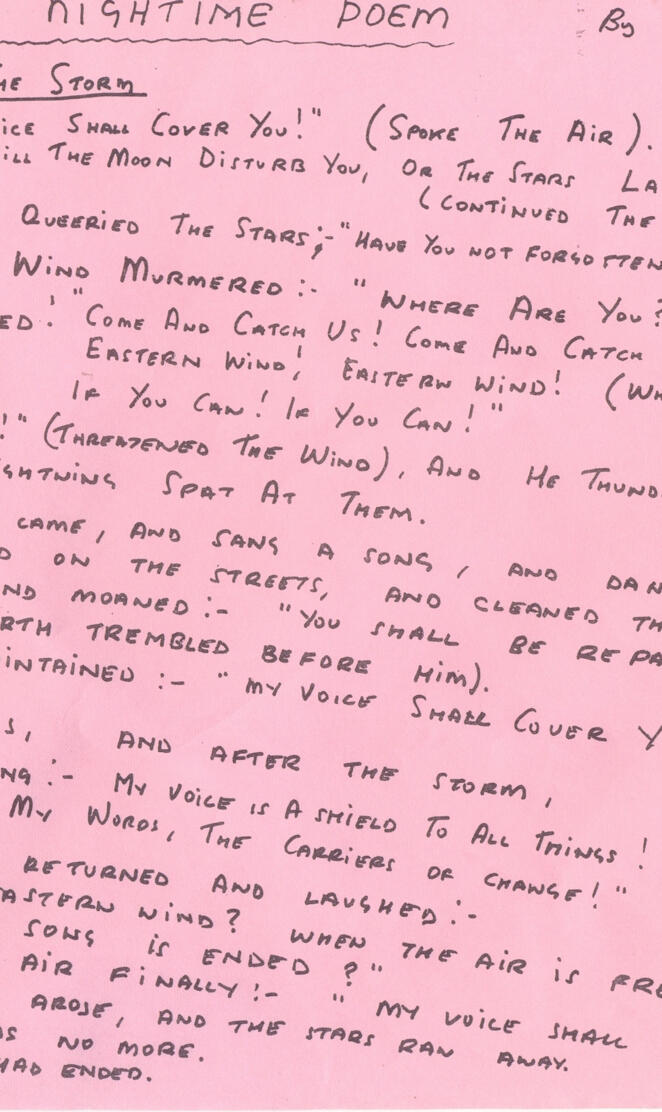 NIGHTIME POEM By
THE STORM
ICE SHALL COVER YOU!" (SPOKE THE AIR).
ILL THE MOON DISTURB YOU, OR THE STARS LA
(CONTINUED THE
QUEERIED THE STARS;- "HAVE YOU NOT FORGOTTEN
WIND MURMERED:- "WHERE ARE YOU?
ED:" "COME AND CATCH US! COME AND CATCH
EASTERN WIND! EASTERN WIND! (WH
IF YOU CAN! IF YOU CAN!"
!" (THREATENED THE WIND), AND HE THUND
GHTNING SPAT AT THEM.
CAME, AND SANG A SONG, AND DAN
D ON THE STREETS, AND CLEANED TH
ND MOANED:- "YOU SHALL BE REPA
RTH TREMBLED BEFORE HIM).
INTAINED:- "MY VOICE SHALL COVER Y
S, AND AFTER THE STORM,
NG:- MY VOICE IS A SHIELD TO ALL THINGS!
MY WORDS, THE CARRIERS OF CHANGE!"
RETURNED AND LAUGHED:-
EASTERN WIND? WHEN THE AIR IS FRE
SONG IS ENDED?"
AIR FINALLY:- "MY VOICE SHALL
AROSE, AND THE STARS RAN AWAY.
AS NO MORE.
HAD ENDED.